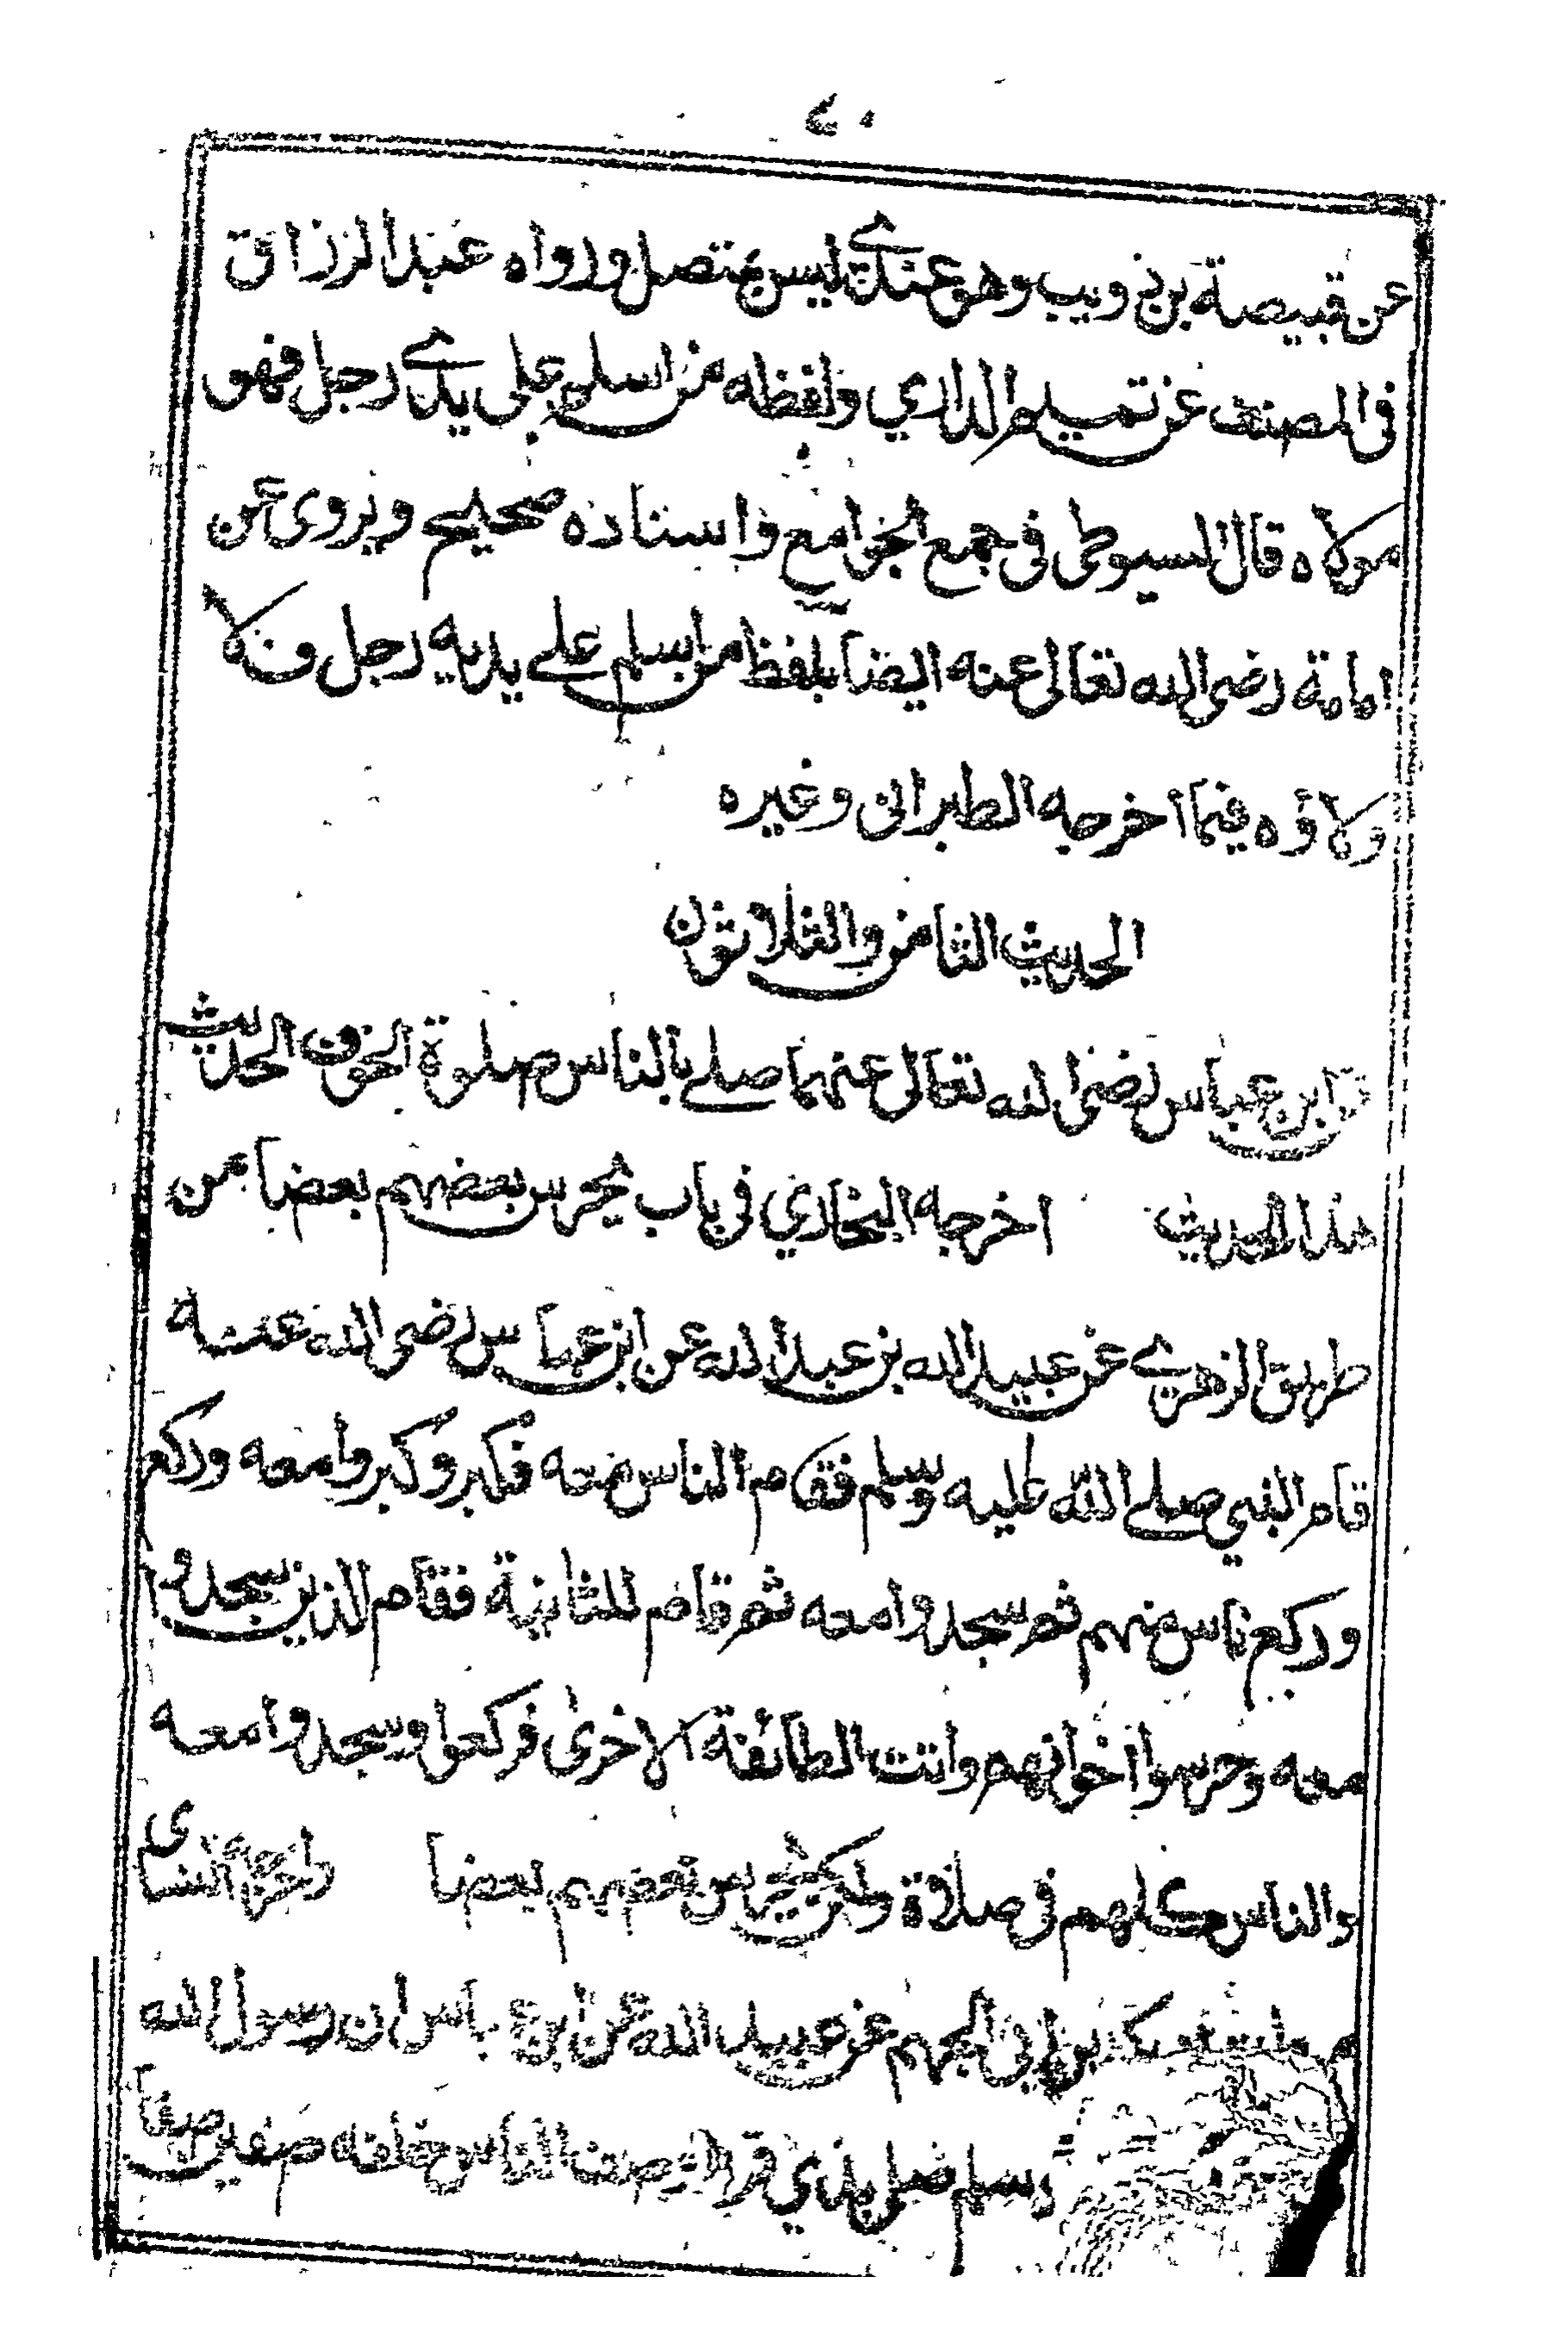 ٤٠
عن قبيصة بن ذويب وهو عندي ليس بمتصل ورواه عبد الرزاق
في المصنف عن تميم الداري ولفظه من اسلم على يدي رجل فهو
مولاه قال السيوطي في جمع الجوامع واسناده صحيح ويروى عن
امامة رضي الله تعالى عنه ايضا بلفظ من اسلم على يديه رجل فلا
ولاؤه فيما أخرجه الطبراني وغيره
الحديث الثامن والثلاثون
ابن عباس رضي الله تعالى عنهما صلى بالناس صلوة الخوف الحديث
هذا الحديث اخرجه البخاري في باب يحرس بعضهم بعضا من
طريق الزهري عن عبيد الله بن عبد الله عن ابن عباس رضي الله عنه
قام النبي صلى الله عليه وسلم فقام الناس معه فكبر وكبروا معه وركع
وركع ناس منهم ثم سجد وا معه ثم قام للثانية فقام الذين سجدوا
معه وحرسوا اخوانهم واتت الطائفة الاخرى فركعوا وسجدوا معه
والناس كلهم في صلاة ولكن يحرس بعضهم بعضا واخرجه النسائى
بكر بن ابي الجهم عن عبيد الله عن ابن عباس ان رسول الله
وسلم صلى بذي قرد وصف الناس خلفه صفين صفا